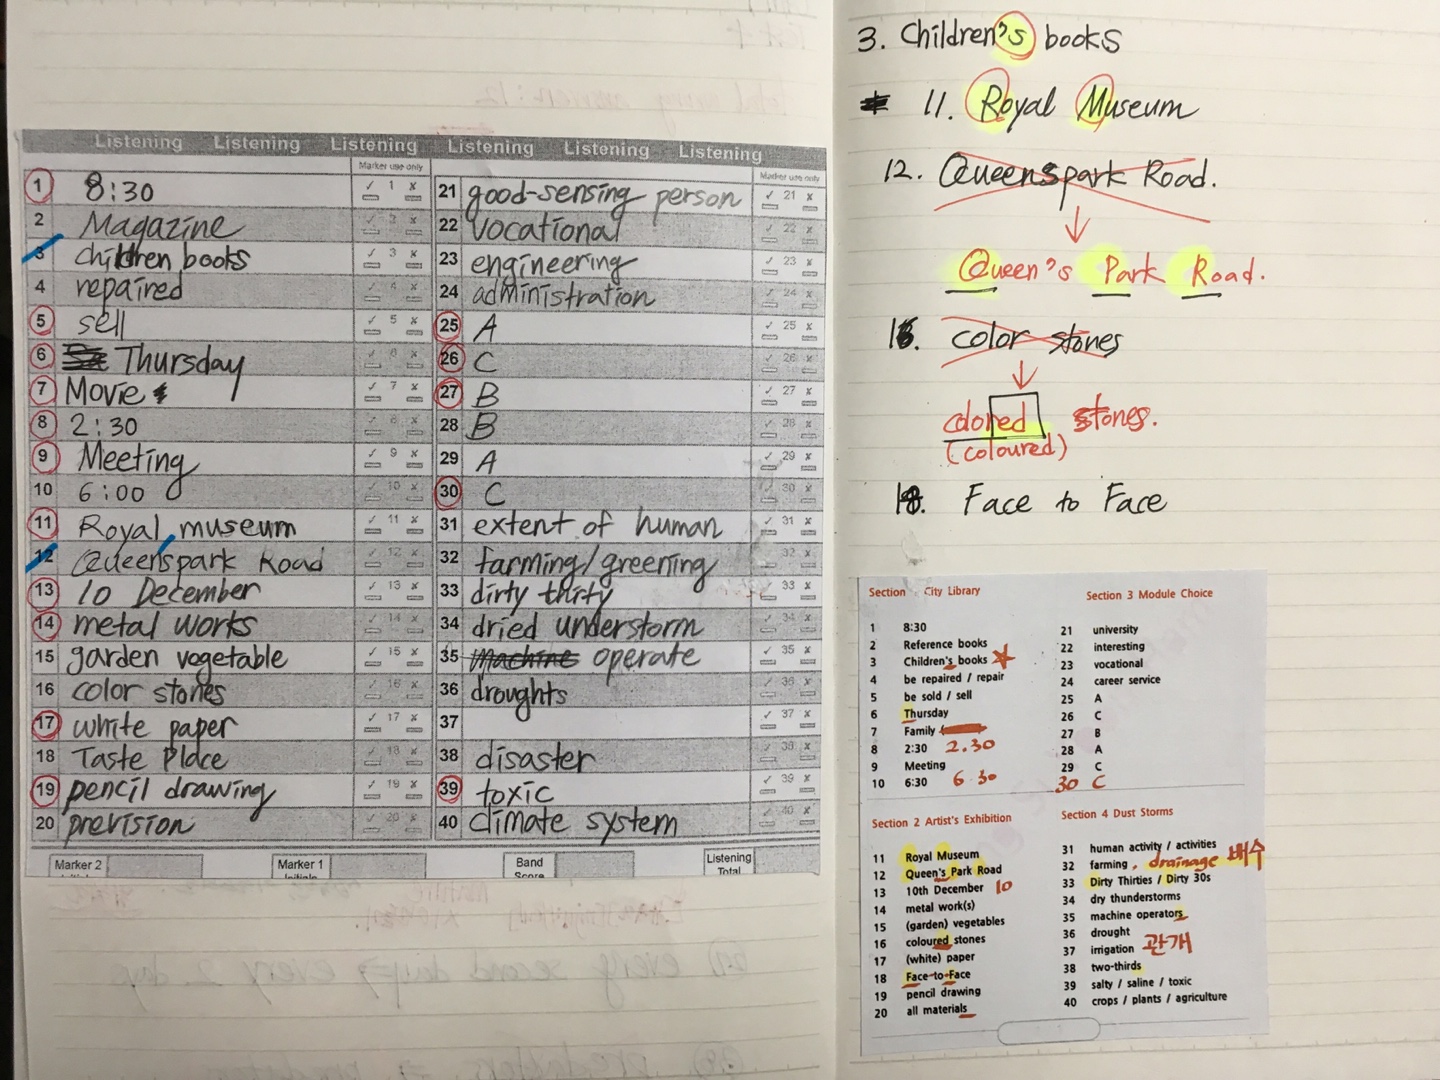 Listening Listening Listening Listening Listening Listening
Marker use only
Marker use only
1 8:30
2 Magazine
3 children books
4 repaired
5 sell
6 Thursday
7 Movie
8 2:30
9 Meeting
10 6:00
11 Royal museum
12 Queenspark Road
13 10 December
14 metal works
15 garden vegetable
16 color stones
17 white paper
18 Taste Place
19 pencil drawing
20 prevision
21 good-sensing person
22 vocational
23 engineering
24 administration
25 A
26 C
27 B
28 B
29 A
30 C
31 extent of human
32 farming/greening
33 dirty thirty
34 dried understorm
35 machine operate
36 droughts
37
38 disaster
39 toxic
40 climate system
Marker 2
Marker 1
Band
Score
Listening
Total
3. Children's books
11. Royal Museum
12. Queenspark Road.
Queen's Park Road.
16. color stones
colored stones.
(coloured)
18. Face to Face
Section City Library
1 8:30
2 Reference books
3 Children's books
4 be repaired / repair
5 be sold / sell
6 Thursday
7 Family
8 2:30 2.30
9 Meeting
10 6:30 6 30
Section 3 Module Choice
21 university
22 interesting
23 vocational
24 career service
25 A
26 C
27 B
28 A
29 C
30 C
Section 2 Artist's Exhibition
11 Royal Museum
12 Queen's Park Road
13 10th December 10
14 metal work(s)
15 (garden) vegetables
16 coloured stones
17 (white) paper
18 Face-to-Face
19 pencil drawing
20 all materials
Section 4 Dust Storms
31 human activity / activities
32 farming . drainage 배수
33 Dirty Thirties / Dirty 30s
34 dry thunderstorms
35 machine operators
36 drought
37 irrigation 관개
38 two-thirds
39 salty / saline / toxic
40 crops / plants / agriculture